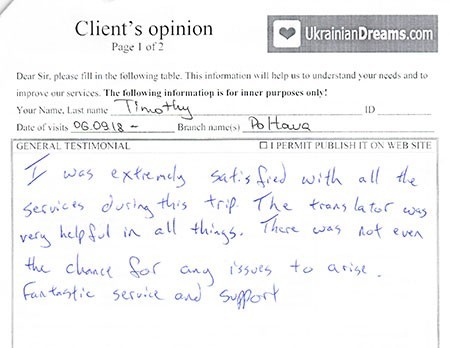 Client's opinion
Page 1 of 2
UkrainianDreams.com
Dear Sir, please fill in the following table. This information will help us to understand your needs and to
improve our services. The following information is for inner purposes only!
Your Name, Last name Timothy ID
Date of visits 06.09.18 - Branch name(s) Poltava
GENERAL TESTIMONIAL ☐ I PERMIT PUBLISH IT ON WEB SITE
I was extremly satisfied with all the
services during this trip. The translator was
very helpful in all things. There was not even
the chance for any issues to arise.
Fantastic service and support